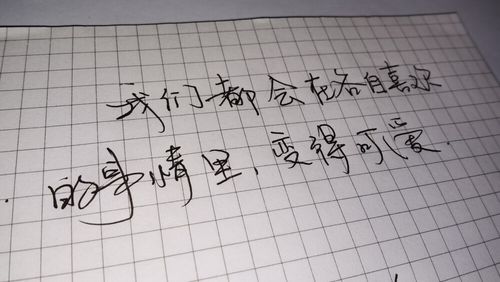 我们都会在各自喜欢
的事情里、变得可爱.